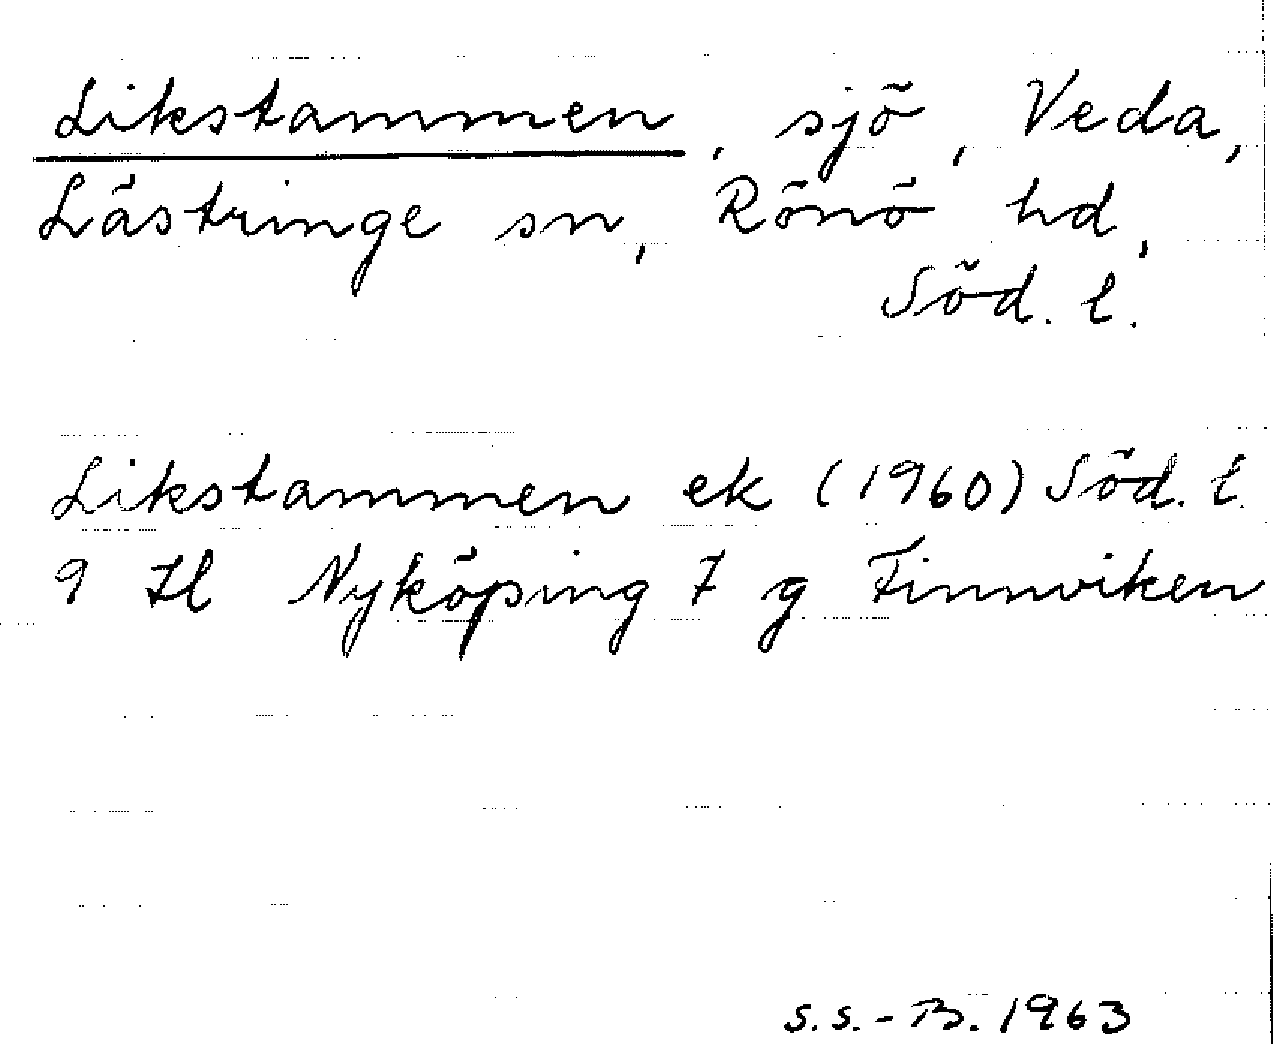 Likstammen, sjö, Veda,
Lästringe sn, Rönö hd,
Söd. l.
Likstammen ek (1960) Söd. l.
9 Hl Nyköping 7 g Finnviken
S.S.-B. 1963